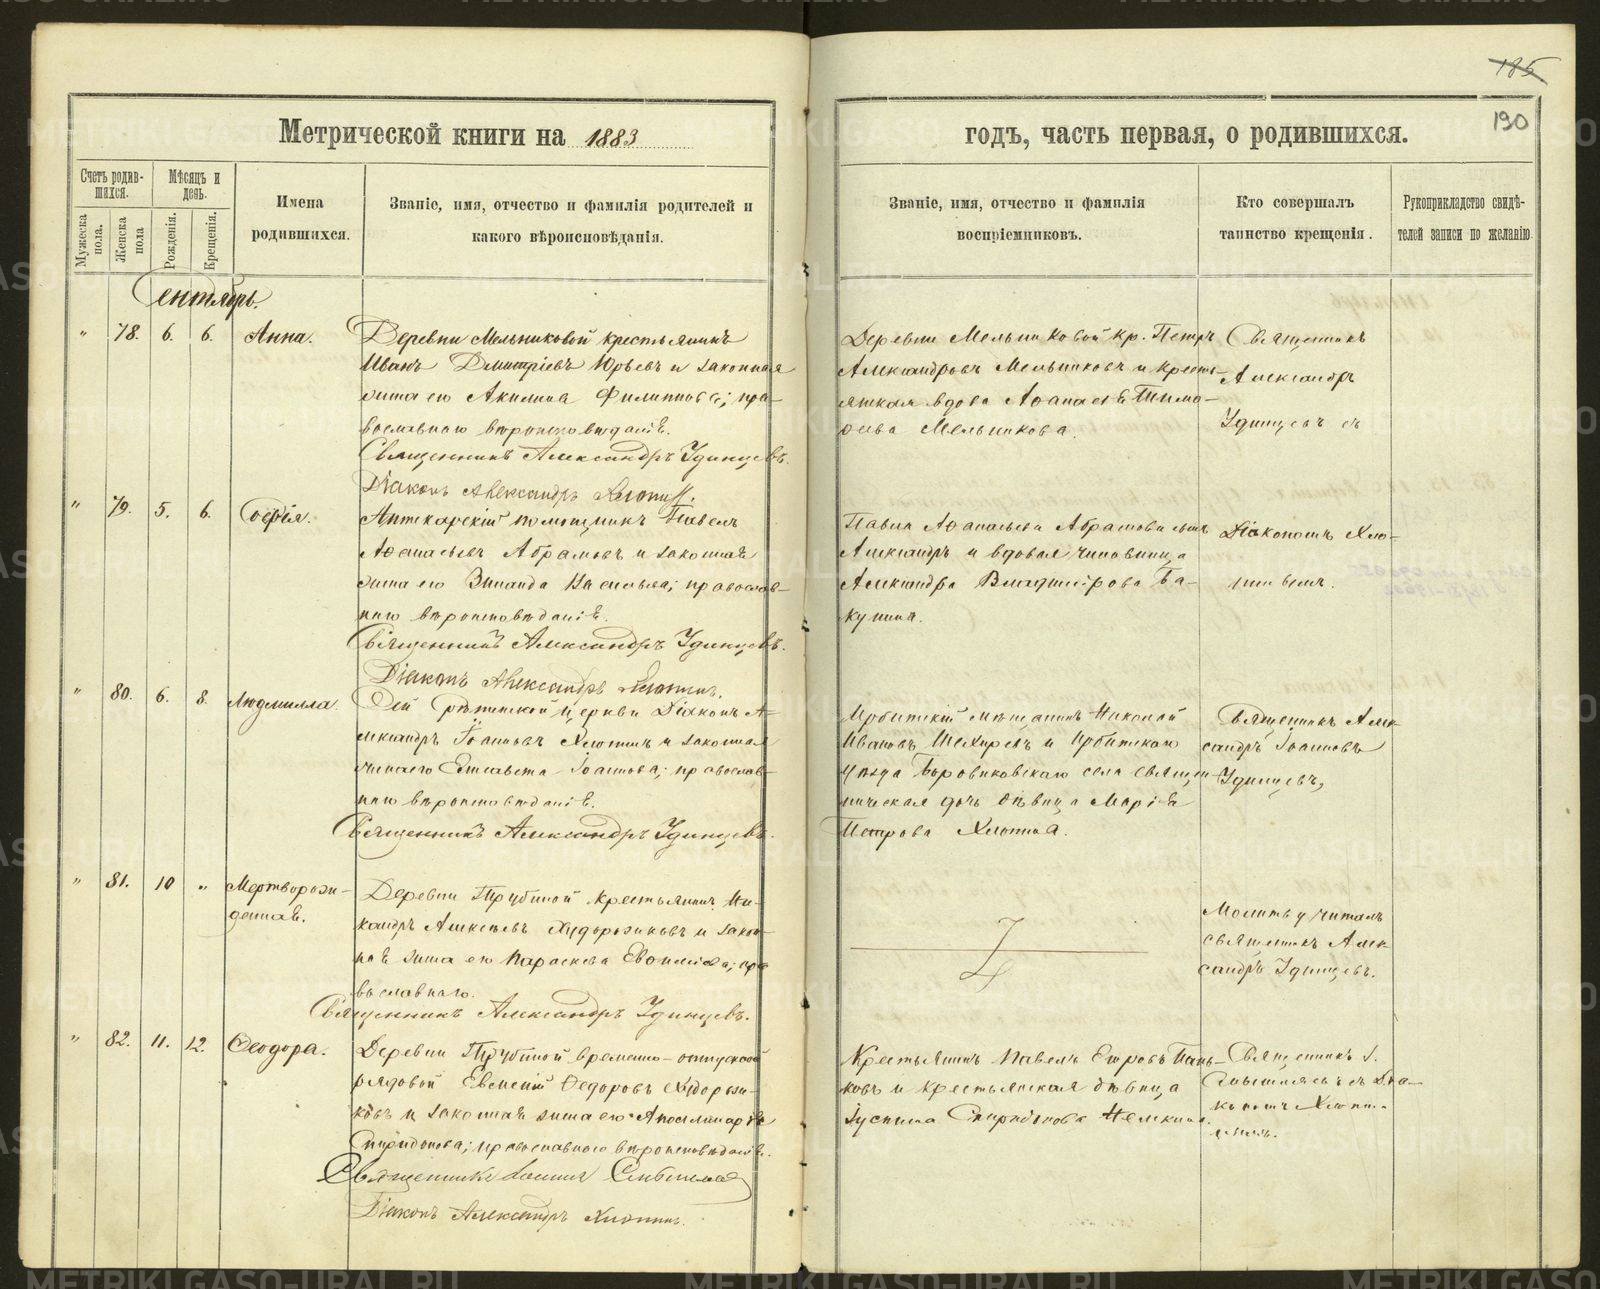 185
190
Метрической книги на 1883
годъ, часть первая, о родившихся.
Счетъ родив-
шихся.
Мѣсяцъ и
день.
Имена
родившихся.
Званіе, имя, отчество и фамилія родителей и
какого вѣроисповѣданія.
Мужеска
пола.
Женска
пола
Рожденія.
Крещенія.
Званіе, имя, отчество и фамилія
воспріемниковъ.
Кто совершалъ
таинство крещенія.
Рукоприкладство свидѣ-
телей записи по желанію.
Сентябрь.
" 78. 6. 6. Анна.
Деревни Мельниковой крестьянинъ
Иванъ Дмитріевъ Юрьевъ и законная
жена его Акилина Филиппова; пра-
вославнаго вѣроисповѣданія.
Священникъ Александръ Удинцевъ.
Діаконъ Александръ Хлопинъ.
Деревни Мельниковой кр. Петръ
Александровъ Мельниковъ и кресть-
янская вдова Аѳанасія Тимо-
ѳеева Мельникова.
Священникъ
Александръ
Удинцевъ съ
" 79. 5. 6. Софія.
Аптекарскій помощникъ Павелъ
Аѳанасьевъ Абрамовъ и законная
жена его Зинаида Васильева; православ-
наго вѣроисповѣданія.
Священникъ Александръ Удинцевъ.
Діаконъ Александръ Хлопинъ.
Павла Аѳанасьева Абрамова сынъ
Александръ и вдовая чиновница
Александра Владимірова Ба-
кунина.
Діакономъ Хло-
пинымъ.
" 80. 6. 8. Людмилла.
Сей Срѣтенской церкви Діаконъ А-
лександръ Іоанновъ Хлопинъ и законная
жена его Елисавета Іоаннова; православ-
наго вѣроисповѣданія.
Священникъ Александръ Удинцевъ.
Ирбитскій мѣщанинъ Николай
Ивановъ и Ирбитскаго
уѣзда Боровиковскаго села священ-
ническая дочь дѣвица Марія
Петрова Хлопина.
Священникъ Алек-
сандръ Іоанновъ
Удинцевъ,
" 81. 10 " Мертворож-
денная.
Деревни Трубиной крестьянинъ Ни-
кандръ Алексѣевъ Худорожковъ и закон-
ная жена его Параскева; пра-
вославнаго.
Священникъ Александръ Удинцевъ.
Молитву читалъ
священникъ Алек-
сандръ Удинцевъ.
" 82. 11. 12. Ѳеодора.
Деревни Трубиной временно-отпускной
рядовой Евгеній Ѳедоровъ Худорож-
ковъ и законная жена его Аполлинарія
Спиридонова; православнаго вѣроисповѣданія.
Священникъ
Діаконъ Александръ Хлопинъ.
Крестьянинъ Павелъ Егоровъ Пань-
ковъ и крестьянская дѣвица
Іустина Спиридонова
Священникъ І.
съ Діа-
кономъ Хлопи-
нымъ.
METRIKI.GASO-URAL.RU